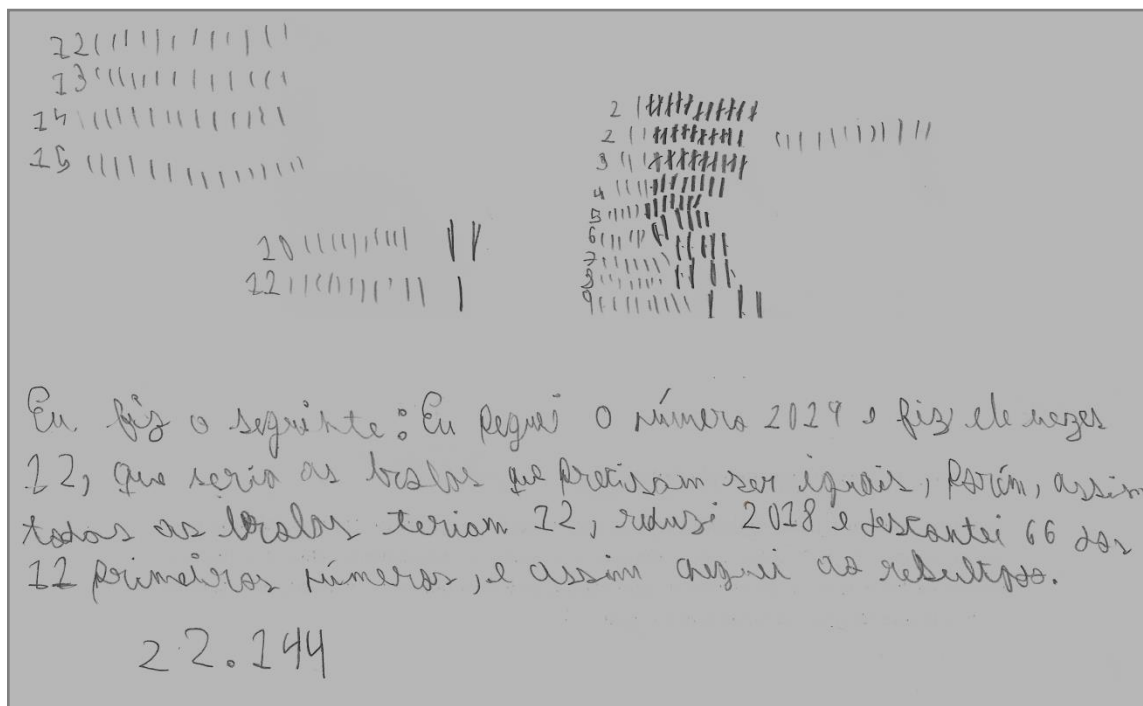 12
13
14
15
1
2
3
4
5
6
7
8
9
10
11
Eu fiz o seguinte: Eu peguei o número 2019 e fiz ele vezes
12, que seria as bolas que precisam ser iguais, Porém, assim
todas as bolas teriam 12, reduzi 2018 e descontei 66 dos
11 primeiros números, e assim cheguei ao resultado.
22.144